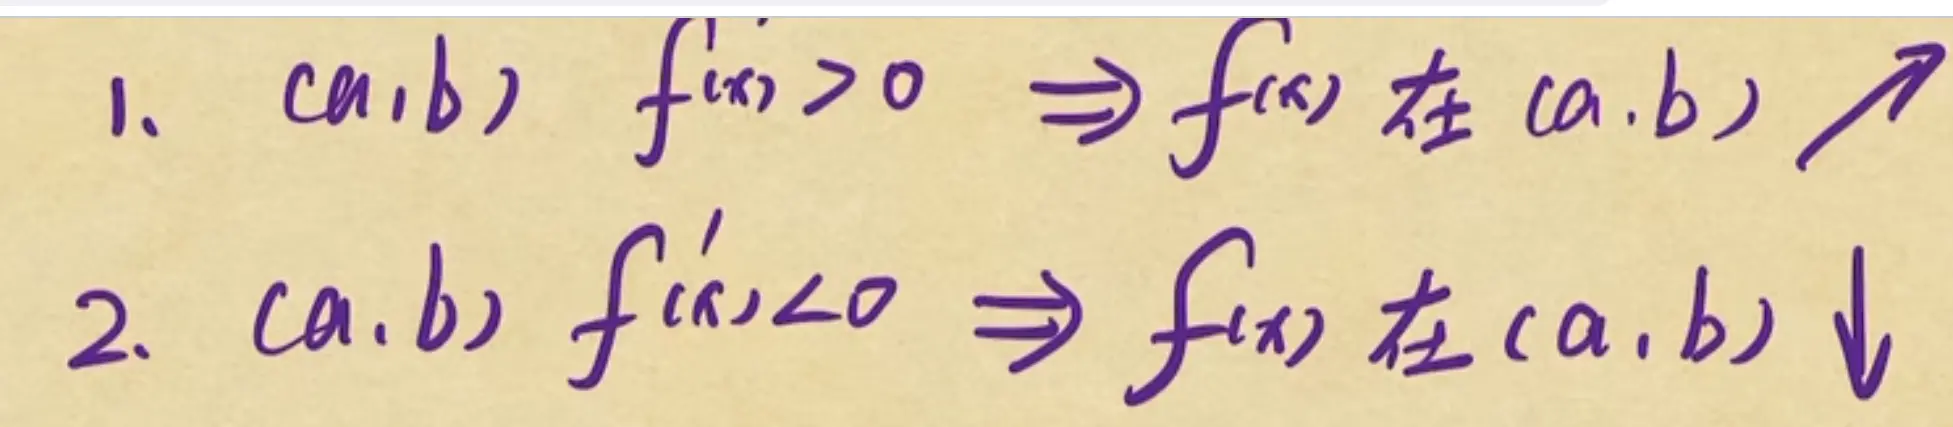 1. (a,b) f'(x)>0 ⇒ f(x) 在 (a,b) ↗
2. (a,b) f'(x)<0 ⇒ f(x) 在 (a,b) ↓